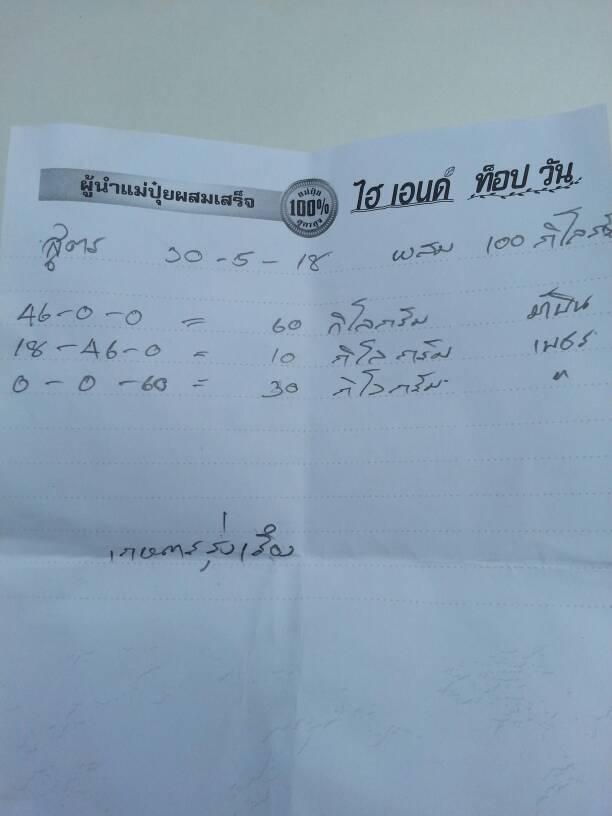 ผู้นำแม่ปุ๋ยผสมเสร็จ แม่ปุ๋ย 100% ไฮ เอนด์ ท็อป วัน
สูตร 30-5-18 ผสม 100 กิโลกรัม
46-0-0 = 60 กิโลกรัม
18-46-0 = 10 กิโลกรัม เพชร
0-0-60 = 30 กิโลกรัม "
เกษตรรุ่งเรือง